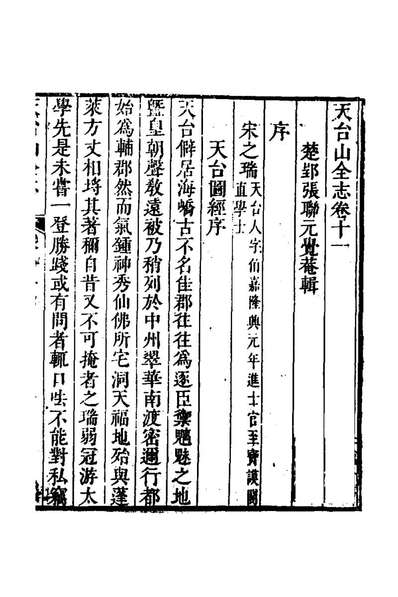 天台山全志卷十一
楚郢張聯元覺菴輯
序
宋之瑞天台人字伯嘉隆興元年進士官至寶謨閣
直學士
天台圖經序
天台僻居海嶠古不名佳郡往往為逐臣禦魑魅之地
曁皇朝聲敎遠被乃稍列於中州翠華南渡密邇行都
始為輔郡然而氣鍾神秀仙佛所宅洞天福地殆與蓬
萊方丈相埓其著稱自昔又不可掩者之瑞弱冠游太
學先是未嘗一登勝踐或有問者輒口呿不能對私竊